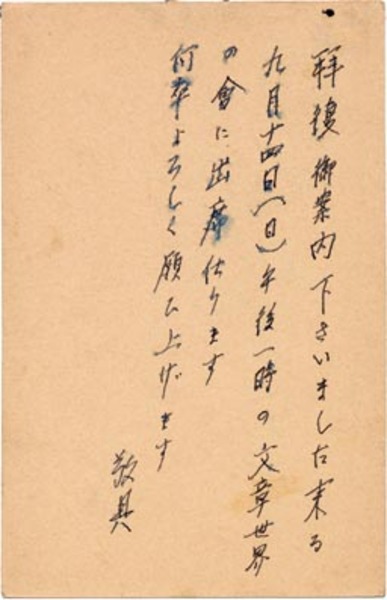 拝復 御案内下さいました来る
九月十四日(日)午後一時の文章世界
の會に出席仕ります
何卒よろしく願ひ上げます
敬具